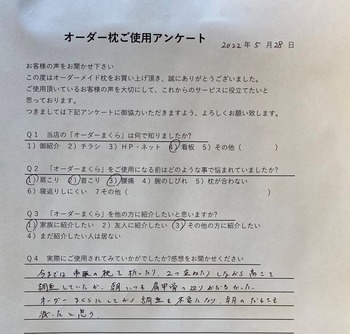 オーダー枕ご使用アンケート
2022年 5月28日
お客様の声をお聞かせ下さい
この度はオーダーメイド枕をお買い上げ頂き、誠にありがとうございました。
ご使用頂いているお客様の声を大切にして、これからのサービスに役立てたいと
思っております。
つきましては下記アンケートに御協力いただきますよう、よろしくお願い致します。
Q1 当店の「オーダーまくら」は何で知りましたか?
1)御紹介 2)チラシ 3)HP・ネット 4)看板 5)その他( )
Q2 「オーダーまくら」をご使用になる前はどのような事で悩まれていましたか?
1)肩こり 2)首こり 3)腰痛 4)腕のしびれ 5)枕が合わない
6)寝返りしにくい 7その他( )
Q3 「オーダーまくら」を他の方に紹介したいと思いますか?
1)家族に紹介したい 2)友人に紹介したい 3)その他の方に紹介したい
4)まだ紹介したい人は居ない
Q4 実際にご使用されてみていかがでしたか?感想をお聞かせください
今までは市販の枕で折ったり、2つ重ねたりしながら高さを
調整していたが、朝いつも肩甲骨のコリがひどかった。
オーダーまくらにしてから調整も不要になり、朝のだるさも
減ったと思う。